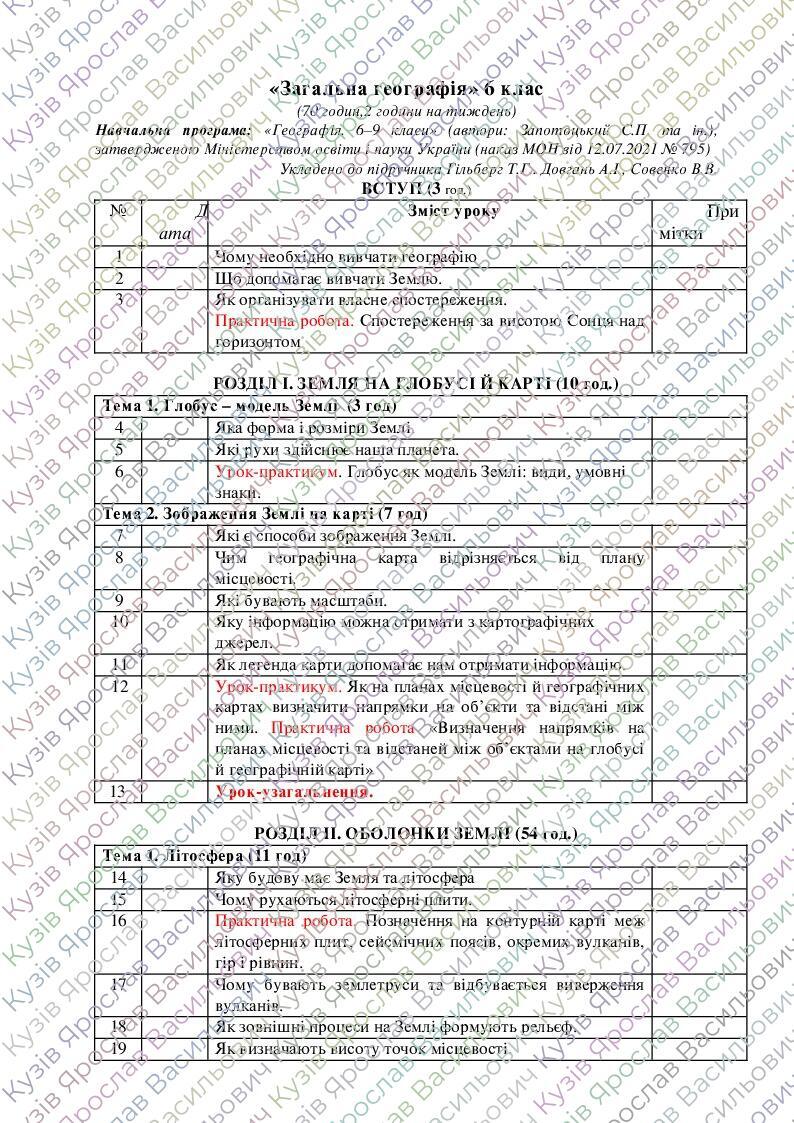 «Загальна географія» 6 клас
(70 годин,2 години на тиждень)
Навчальна програма: «Географія. 6–9 класи» (автори: Запотоцький С.П. та ін.),
затвердженою Міністерством освіти і науки України (наказ МОН від 12.07.2021 № 795)
Укладено до підручника Гільберг Т.Г., Довгань А.І., Совенко В.В.
ВСТУП (3 год.)
№ Д ата Зміст уроку При мітки
1 Чому необхідно вивчати географію
2 Що допомагає вивчати Землю.
3 Як організувати власне спостереження.
Практична робота. Спостереження за висотою Сонця над
горизонтом
РОЗДІЛ І. ЗЕМЛЯ НА ГЛОБУСІ Й КАРТІ (10 год.)
Тема 1. Глобус – модель Землі (3 год)
4 Яка форма і розміри Землі.
5 Які рухи здійснює наша планета.
6 Урок-практикум. Глобус як модель Землі: види, умовні
знаки.
Тема 2. Зображення Землі на карті (7 год)
7 Які є способи зображення Землі.
8 Чим географічна карта відрізняється від плану
місцевості.
9 Які бувають масштаби.
10 Яку інформацію можна отримати з картографічних
джерел.
11 Як легенда карти допомагає нам отримати інформацію.
12 Урок-практикум. Як на планах місцевості й географічних
картах визначити напрямки на об’єкти та відстані між
ними. Практична робота «Визначення напрямків на
планах місцевості та відстаней між об’єктами на глобусі
й географічній карті»
13 Урок-узагальнення.
РОЗДІЛ ІІ. ОБОЛОНКИ ЗЕМЛІ (54 год.)
Тема 1. Літосфера (11 год)
14 Яку будову має Земля та літосфера
15 Чому рухаються літосферні плити.
16 Практична робота. Позначення на контурній карті меж
літосферних плит, сейсмічних поясів, окремих вулканів,
гір і рівнин.
17 Чому бувають землетруси та відбувається виверження
вулканів.
18 Як зовнішні процеси на Землі формують рельєф.
19 Як визначають висоту точок місцевості.
Кузів Ярослав Васильович